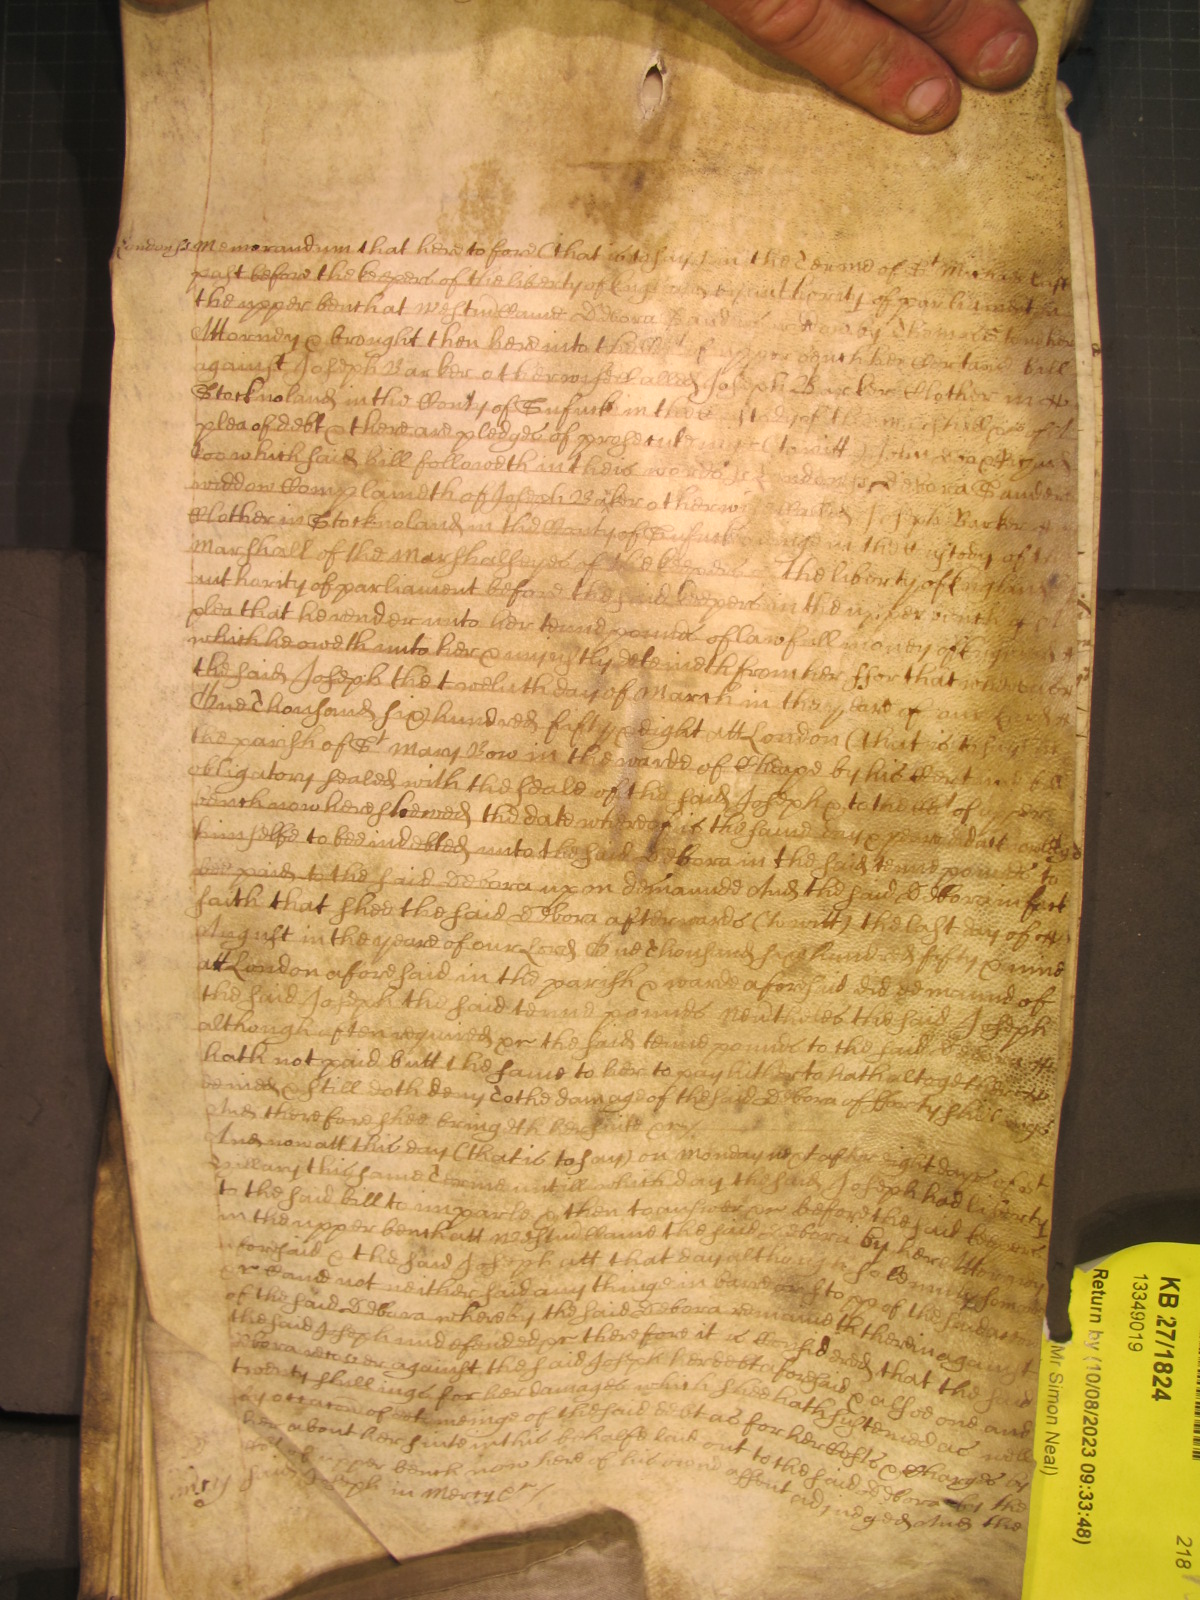 London ss Memorandum that heretofore (that is to say) in the Terme of St Michaell last
past before the keepers of the liberty of England by authority of parliament in
the upper bench at Westm came Debora Sanders widdow by Thomas
Attorney & brought then here into the Court of upper bench her certaine bill
against Joseph Barker otherwise called Joseph Barker Clother in
Stocknoland in the County of Suffuck in the Custody of the marshall &c of a
plea of debt & there are pledges of prosecuteinge (to witt) John Doe & Richard
Roe which said bill followeth in theis words ss London ss Debora Sanders
widdow Complaineth of Joseph Baker otherwise called Joseph Barker
Clother in Stocknoland in the County of Suffuck beinge in the Custody of the
Marshall of the Marshallseyes of the keepers of the liberty of England by
authority of parliament before the said keepers in the upper bench of a
plea that he render unto her tenne pounds of lawfull money of England
which he oweth unto her & unjustly deteineth from her ffor that whereas
the said Joseph the twelveth day of March in the yeare of our Lord
One Thousand six hundred fifty & eight att London (that is to say) in
the parish of St Mary Bow in the warde of Cheape by his Certaine bill
obligatory sealed with the seale of the said Joseph & to the Court of upper
bench now here shewed the date whereof is the same day & yeare did acknowledge
himselfe to bee indebted unto the said Debora in the said tenne pounds to
bee paid to the said Debora upon demaunde And the said Debora in fact
saith that shee the said Debora afterwards (to witt) the last day of
August in the yeare of our Lord One Thousand six hundred fifty & nine
att London aforesaid in the parish & warde aforesaid did demaund of
the said Joseph the said tenne pounds Nevertheles the said Joseph
although often required &c the said tenne pounds to the said Debora
hath not paid butt the same to her to pay hitherto hath altogether
denied & still doth deny To the damage of the said Debora of forty shillings
And therefore shee bringeth her suite &c
And now att this day (that is to say) on Monday next after eight dayes of St
Hillary this same Terme untill which day the said Joseph had liberty
to the said bill to imparle & then to answer &c before the said keepers
in the upper bench att Westm came the said Debora by her Attorney
aforesaid & the said Joseph att that day although solemnly
&c Came not neither said any thinge in barre of the said
of the said Debora whereby the said Debora remaineth therein against
the said Joseph undefended &c therefore it is Considered that the said
Debora recover against the said Joseph her debt aforesaid & alsoe one and
twenty shillings for her damages which shee hath susteined as well
by occasion of deteineinge of the said debt as for her Costs & Charges by
her about her suite in this behalfe laid out to the said Debora by the
Court of upper bench now here of his owne assent adjudged And the
said Joseph in Mercy &c
mercy
KB 27/1824
13349019
Return by (10/08/2023 09:33:48)
Mr Simon Neal)
218